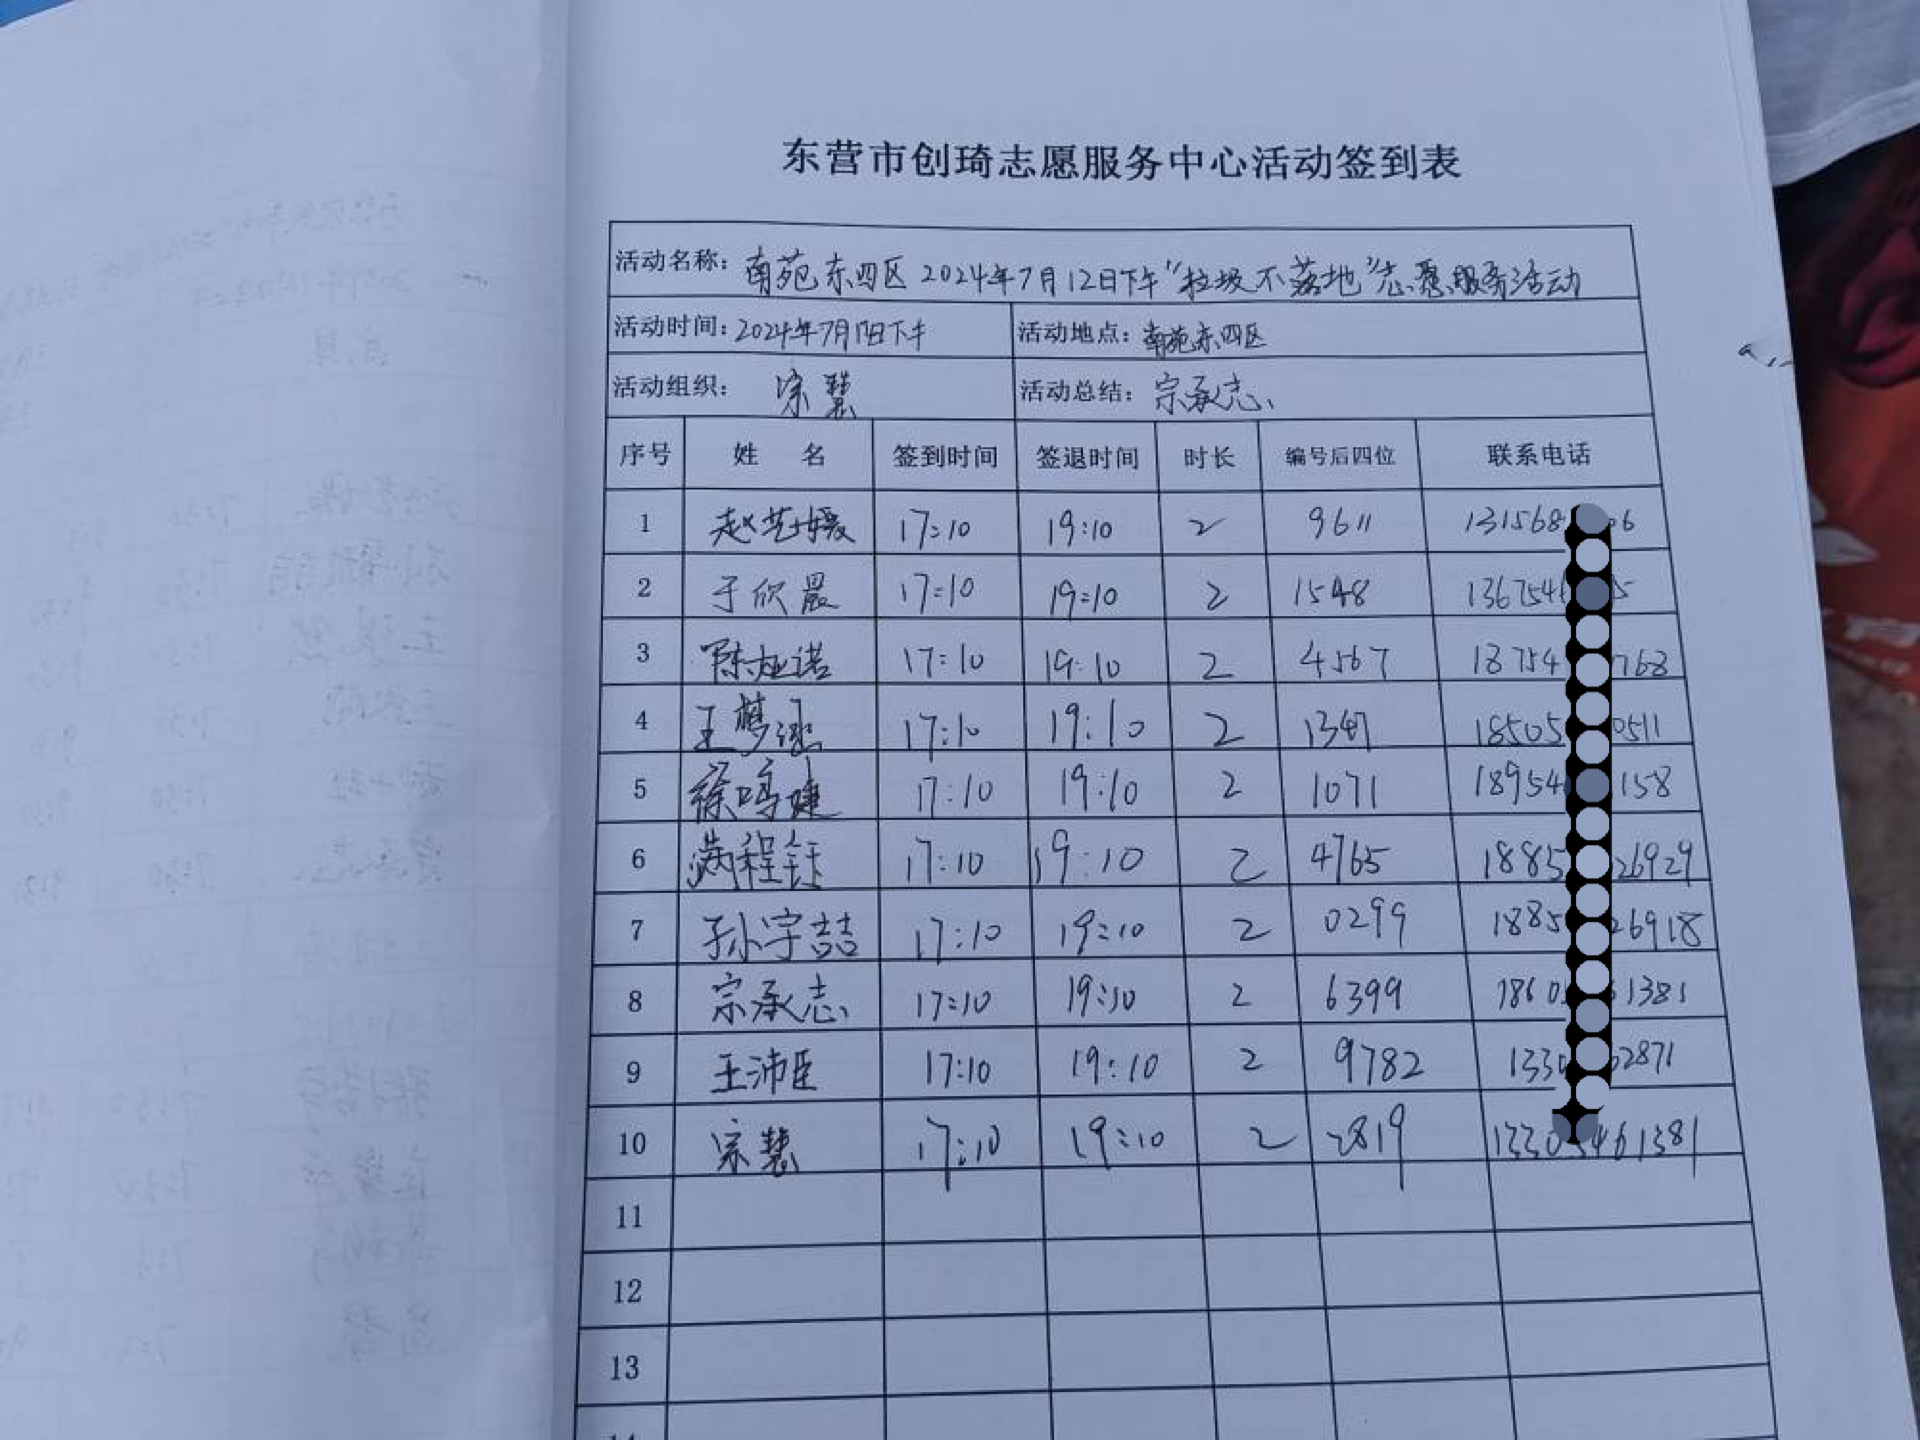 东营市创琦志愿服务中心活动签到表
活动名称：南苑东四区2024年7月12日下午“垃圾不落地”志愿服务活动
活动时间：2024年7月12日下午 活动地点：南苑东四区
活动组织：宗慧 活动总结：宗承志
序号 姓名 签到时间 签退时间 时长 编号后四位 联系电话
1 赵艺媛 17:10 19:10 2 9611 131568 06
2 于欣晨 17:10 19:10 2 1548 136754 5
3 陈灿诺 17:10 19:10 2 4567 18754 768
4 王梦涵 17:10 19:10 2 1347 18505 0511
5 徐鸣婕 17:10 19:10 2 1071 18954 158
6 满程钰 17:10 19:10 2 4765 1885 26929
7 孙宇喆 17:10 19:10 2 0299 1885 26918
8 宗承志 17:10 19:10 2 6399 1860 1381
9 王沛臣 17:10 19:10 2 9782 133 2871
10 宗慧 17:10 19:10 2 2819 13305461381
11
12
13